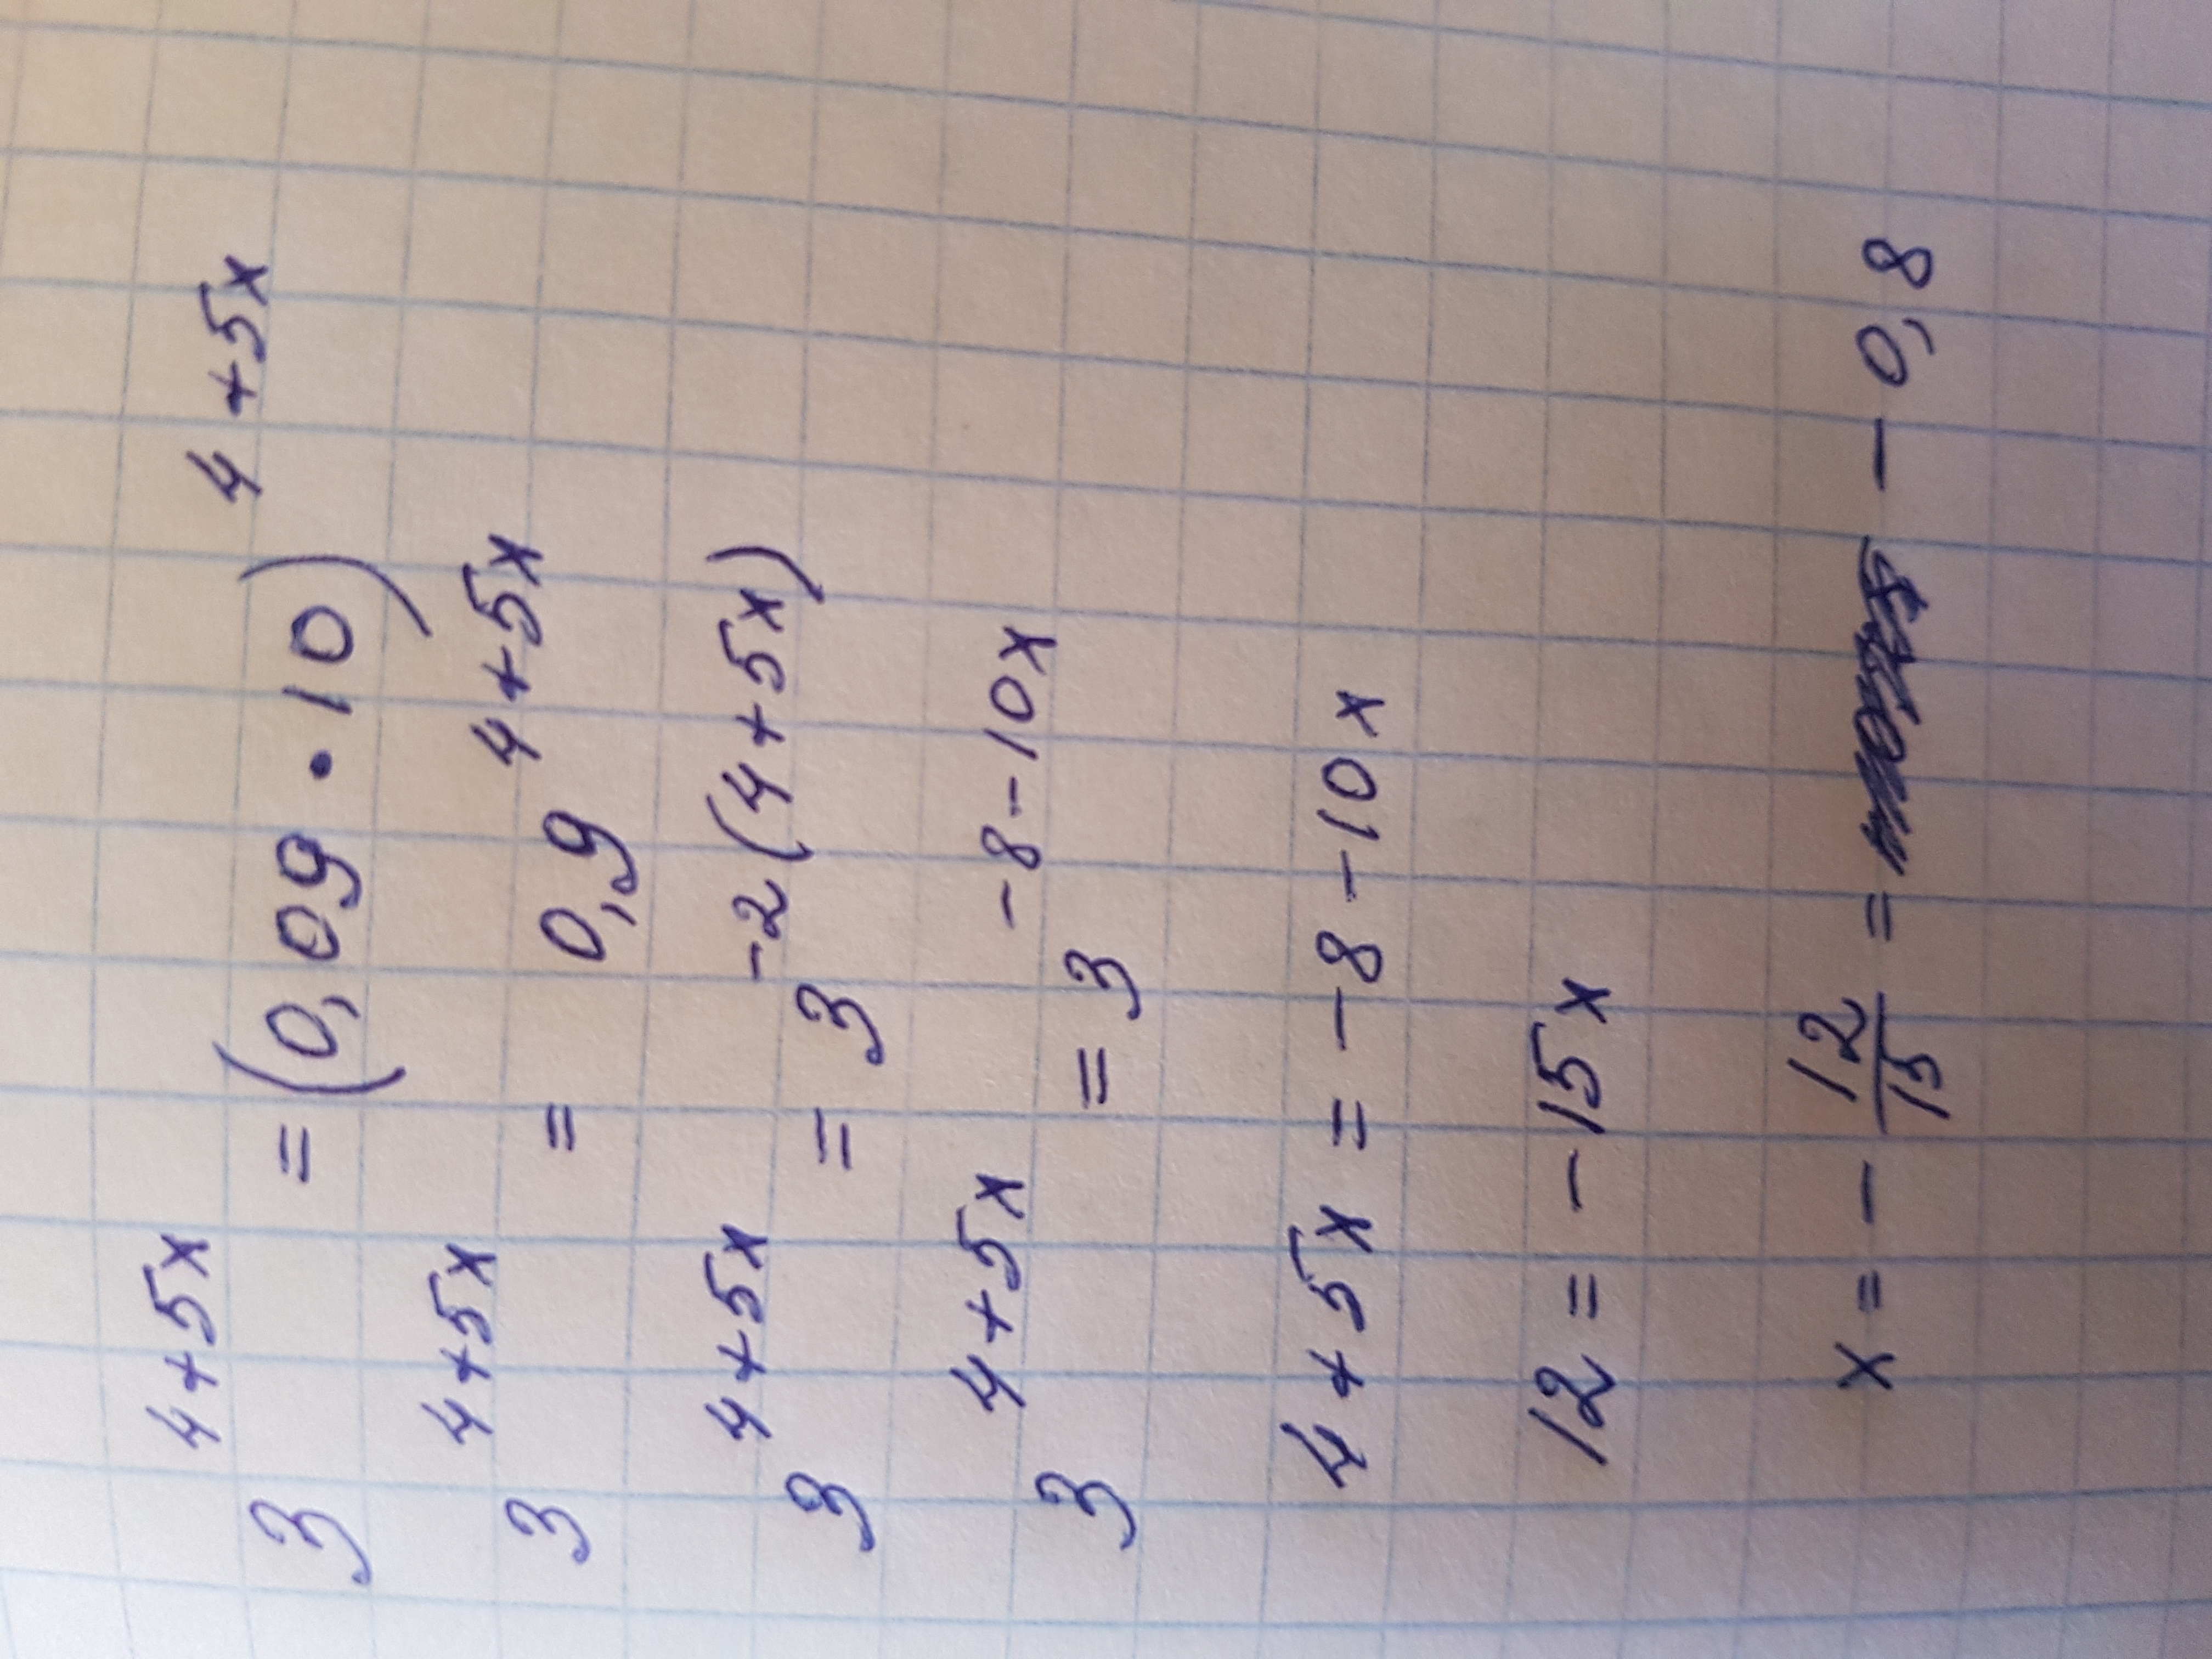 3^{4+5x} = (0,09 · 10)^{4+5x}
3^{4+5x} = 0,9^{4+5x}
3^{4+5x} = 3^{-2(4+5x)}
3^{4+5x} = 3^{-8-10x}
4+5x = -8-10x
12 = -15x
x = -\frac{12}{15} = -0,8